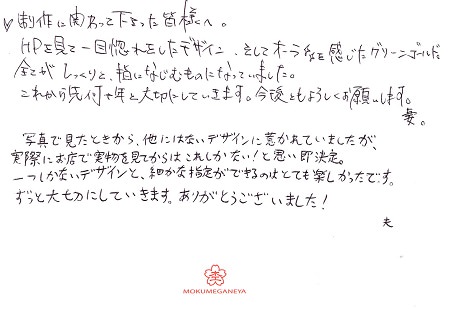 ♡制作に関わって下さった皆様へ。
HPを見て一目惚れをしたデザイン、そしてオーラを感じたグリーンゴールド
全てがしっくりと、指になじむものになっていました。
これから先何十年と大切にしていきます。今後ともよろしくお願いします。
妻。
写真で見たときから、他にはないデザインに惹かれていましたが、
実際にお店で実物を見てからはこれしかない！と思い即決定。
一つしかないデザインと、細かな指定ができるのはとても楽しかったです。
ずっと大切にしていきます。ありがとうございました！
夫
MOKUMEGANEYA